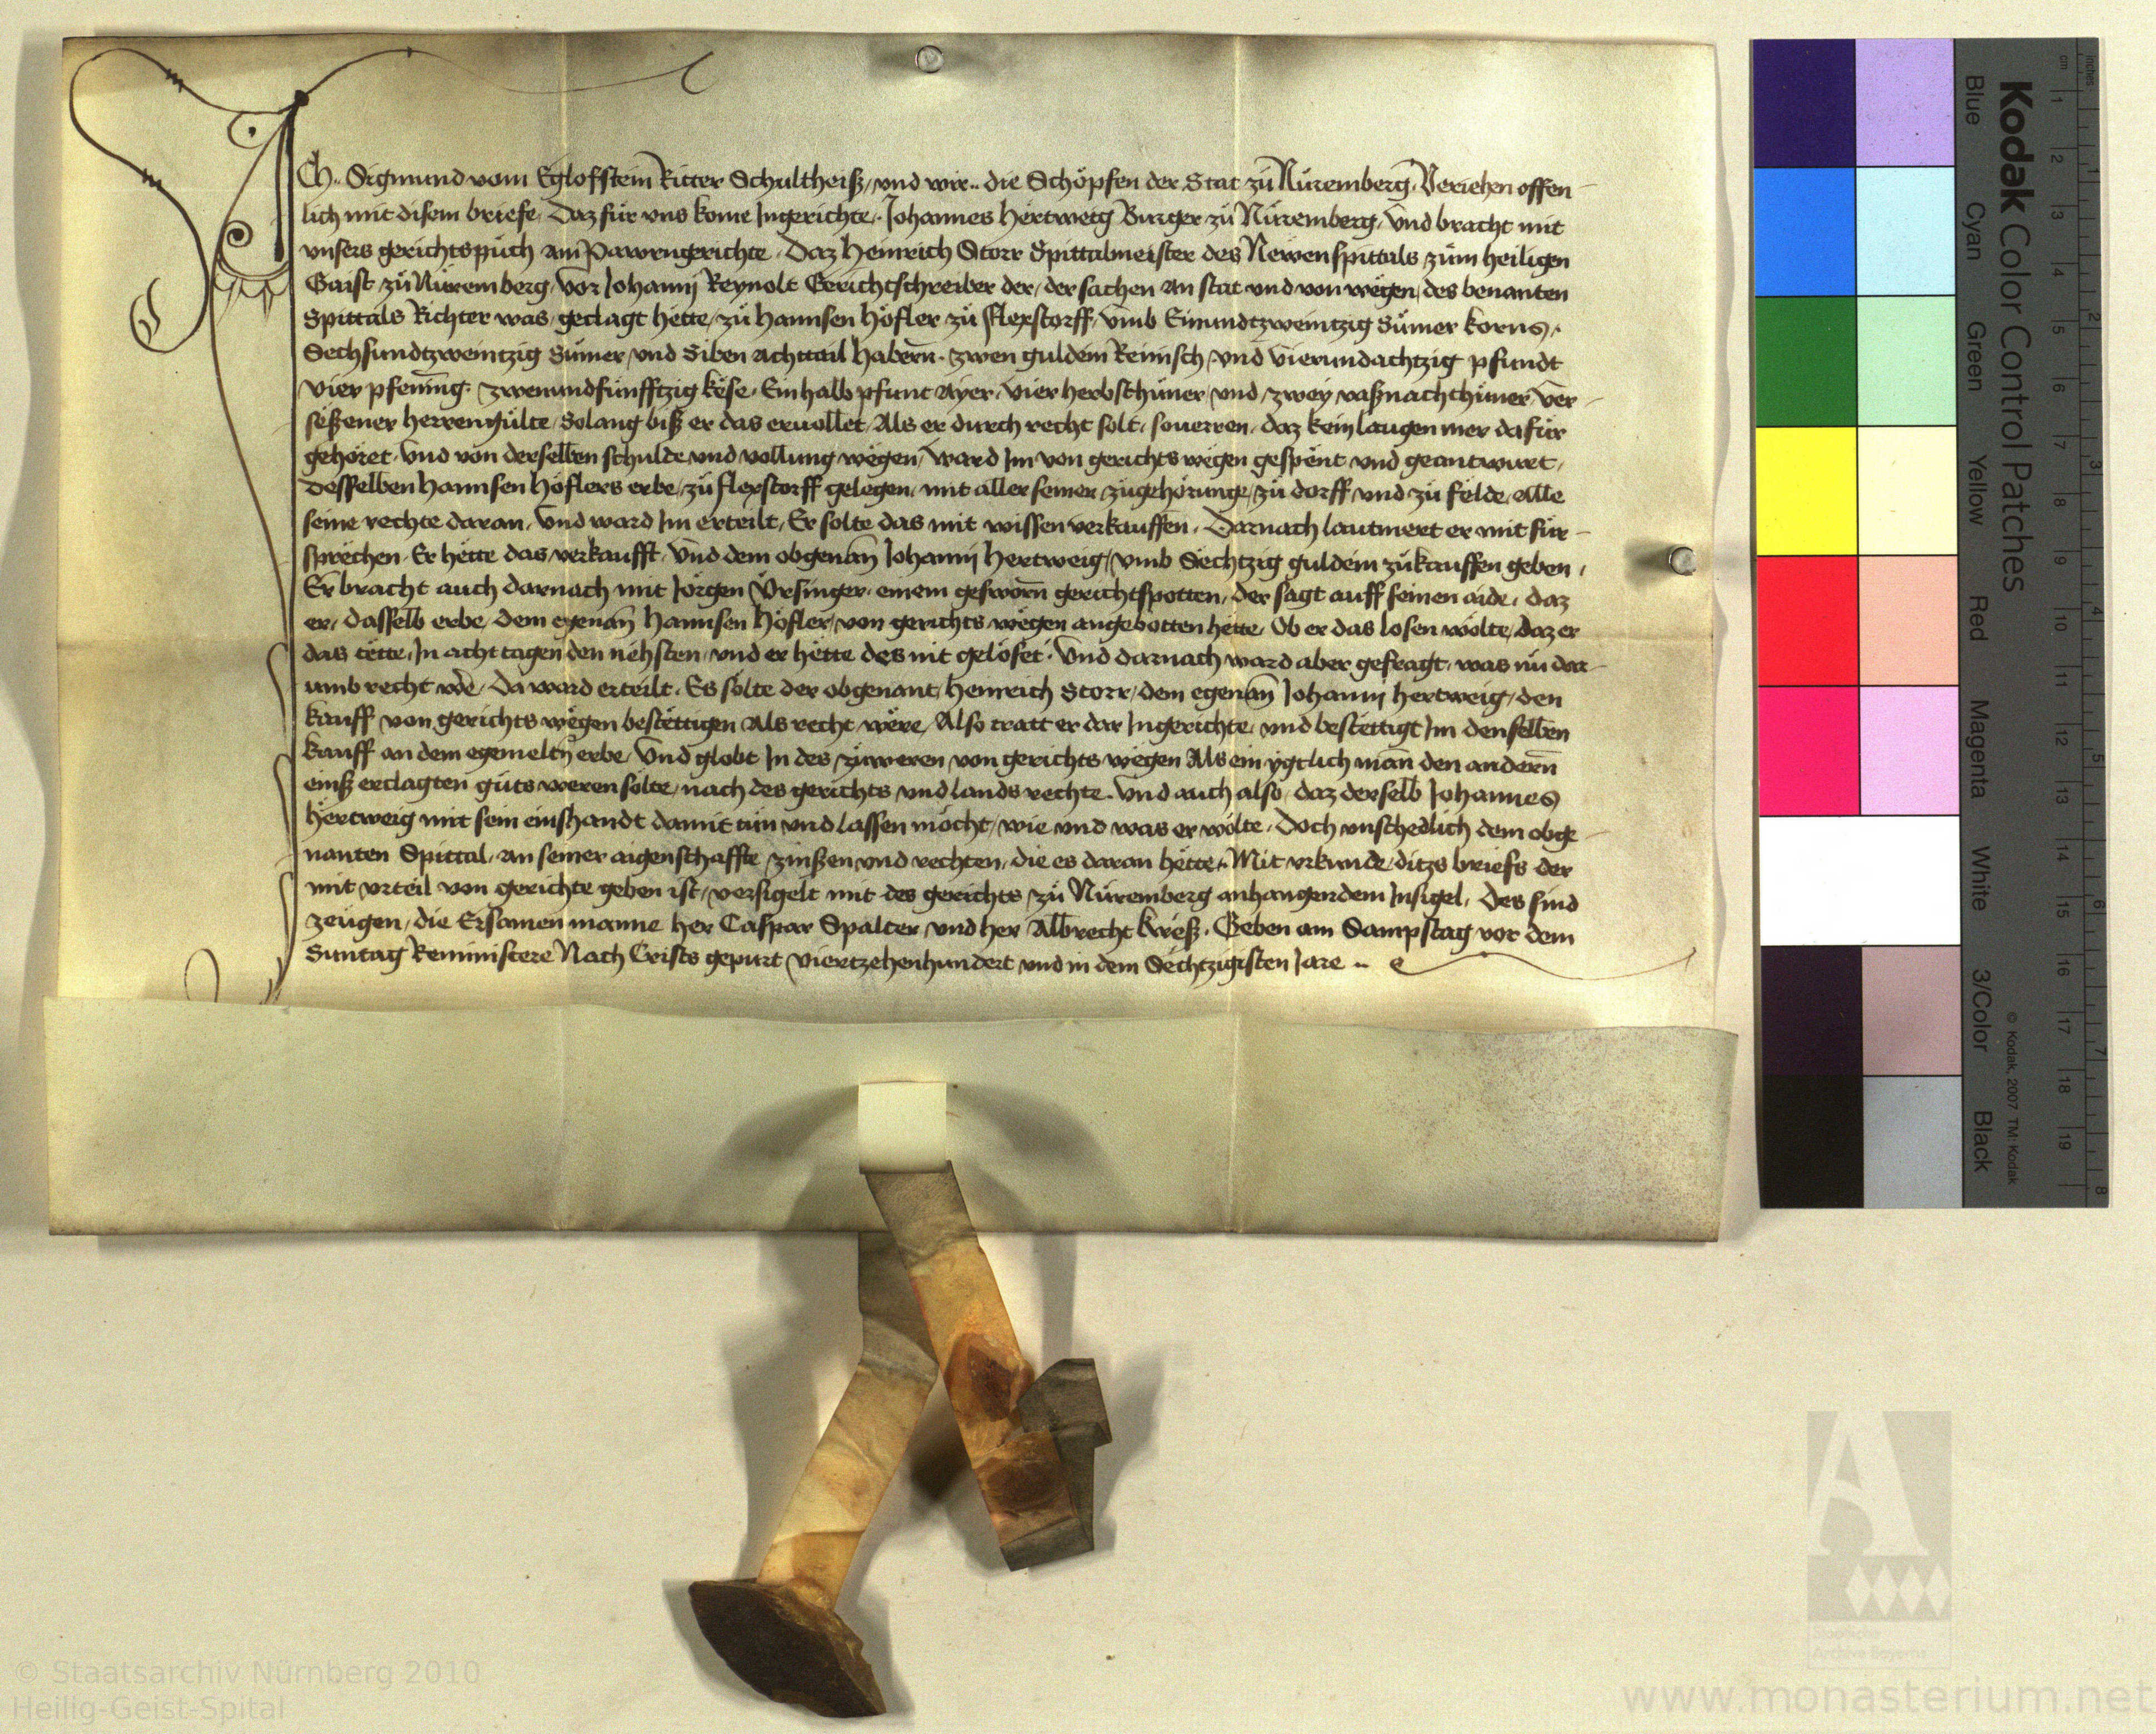 ICh .. Sigmund vom Eglofstein Ritter Schultheiß / und wir .. die Schöpfen der Stat zů Nůremberg / Veriehen offen-
lich mit disem briefe / Daz für vns kome Ingerichte / Johannes Hertweig Burger zů Nůremberg / Vnd bracht mit
vnsers gerichtspůch am Pawrngerichte / Daz Heinrich Storr Spittalmeister des Newenspittals zům heiligen
Gaist / zů Nůremberg / vor Johannj Reynolt Gerichtschreiber der / der sachen an stat vnd von wegen / des benanten
Spittals Richter was / geclagt hette / zů Hannsen Höfler zů Flexstorff / vmb Einundtzweintzig Sümer korns /
Sechsundtzweintzig Sümer / vnd Siben achttail Habern̄ . zwen guldein Reinisch / vnd vierundachtzig pfundt
vier pfening . Zwenundfünfftzig kese / Ein halb pfunt Ayer / vier herbsthüner / vnd / zwey vaßnachthüner ver-
seßener herrengülte / Solang biß er das eruollet / Als er durch recht solt / souerren / daz kein laugen mer dafür
gehöret / Vnd von derselben schulde vnd vollung wegen / ward Im von gerichts wegen gespent vnd geantwurt /
desselben Hannsen Höflers erbe / zů Flexstorff gelegen / mit aller seiner zůgehörunge / zů dorff / vnd zů felde / alle
seine rechte daran / Vnd ward Im erteilt / Er solte das mit wissen verkauffen / Darnach lautmert er mit für-
sprechen / Er hette das verkaufft / Vnd dem obgenan̄ Johannj Hertweig / vmb Sechtzig guldein zůkauffen geben /
Er bracht auch darnach mit Jörgen Vrsinger / einem gesworn̄ gerichtspotten / der sagt auff seinen aide / daz
er / dasselb erbe / dem egenan̄ Hannsen Höfler / von gerichts wegen angebotten hette / Ob er das losen wölte / daz er
das tette / In acht tagen den nehsten / vnd er hette des nit gelöset . Vnd darnach ward aber gefragt / was nů dar-
umb recht wē / Da ward erteilt / Es sölte der obgenant / Heinrich Storr / dem egenan̄ Johannj Hertweig / den
kauff von gerichts wegen bestettigen als recht were / Also tratt er dar Ingerichte / vnd bestettigt Im denselben
kauff an dem egemeltn̄ erbe / Vnd globt In des zůweren von gerichts wegen Als ein ygtlich man̄ den andern̄
einß erclagten gůts weren sölte / nach des gerichts vnd lands rechte . Vnd auch also / daz derselb Johannes
Hertweig mit sein einshandt damit tůn vnd lassen möcht / wie vnd was er wölte / Doch vnschedlich dem obge-
nanten Spittal / an seiner aigenschaffte / zinßen vnd rechten / die es daran hette / Mit vrkunde ditzs briefs der
mit vrteil von gerichte geben ist / versigelt mit des gerichts zů Nůremberg anhangendem Insigel / Des sind
zeügen / die Ersamen manne her Caspar Spalter / vnd her Albrecht Kreß . Geben am Sampstag vor dem
Suntag Reministere Nach Crists gepurt viertzehenhundert vnd in dem Sechtzigisten Jare ..
Kodak Color Control Patches
Blue Cyan Green Yellow Red Magenta White 3/Color Black
© Kodak, 2007 TM: Kodak
cm 1 2 3 4 5 6 7 8 9 10 11 12 13 14 15 16 17 18 19
inches 1 2 3 4 5 6 7 8
© Staatsarchiv Nürnberg 2010
Heilig-Geist-Spital
Staatliche
Archive Bayerns
www.monasterium.net